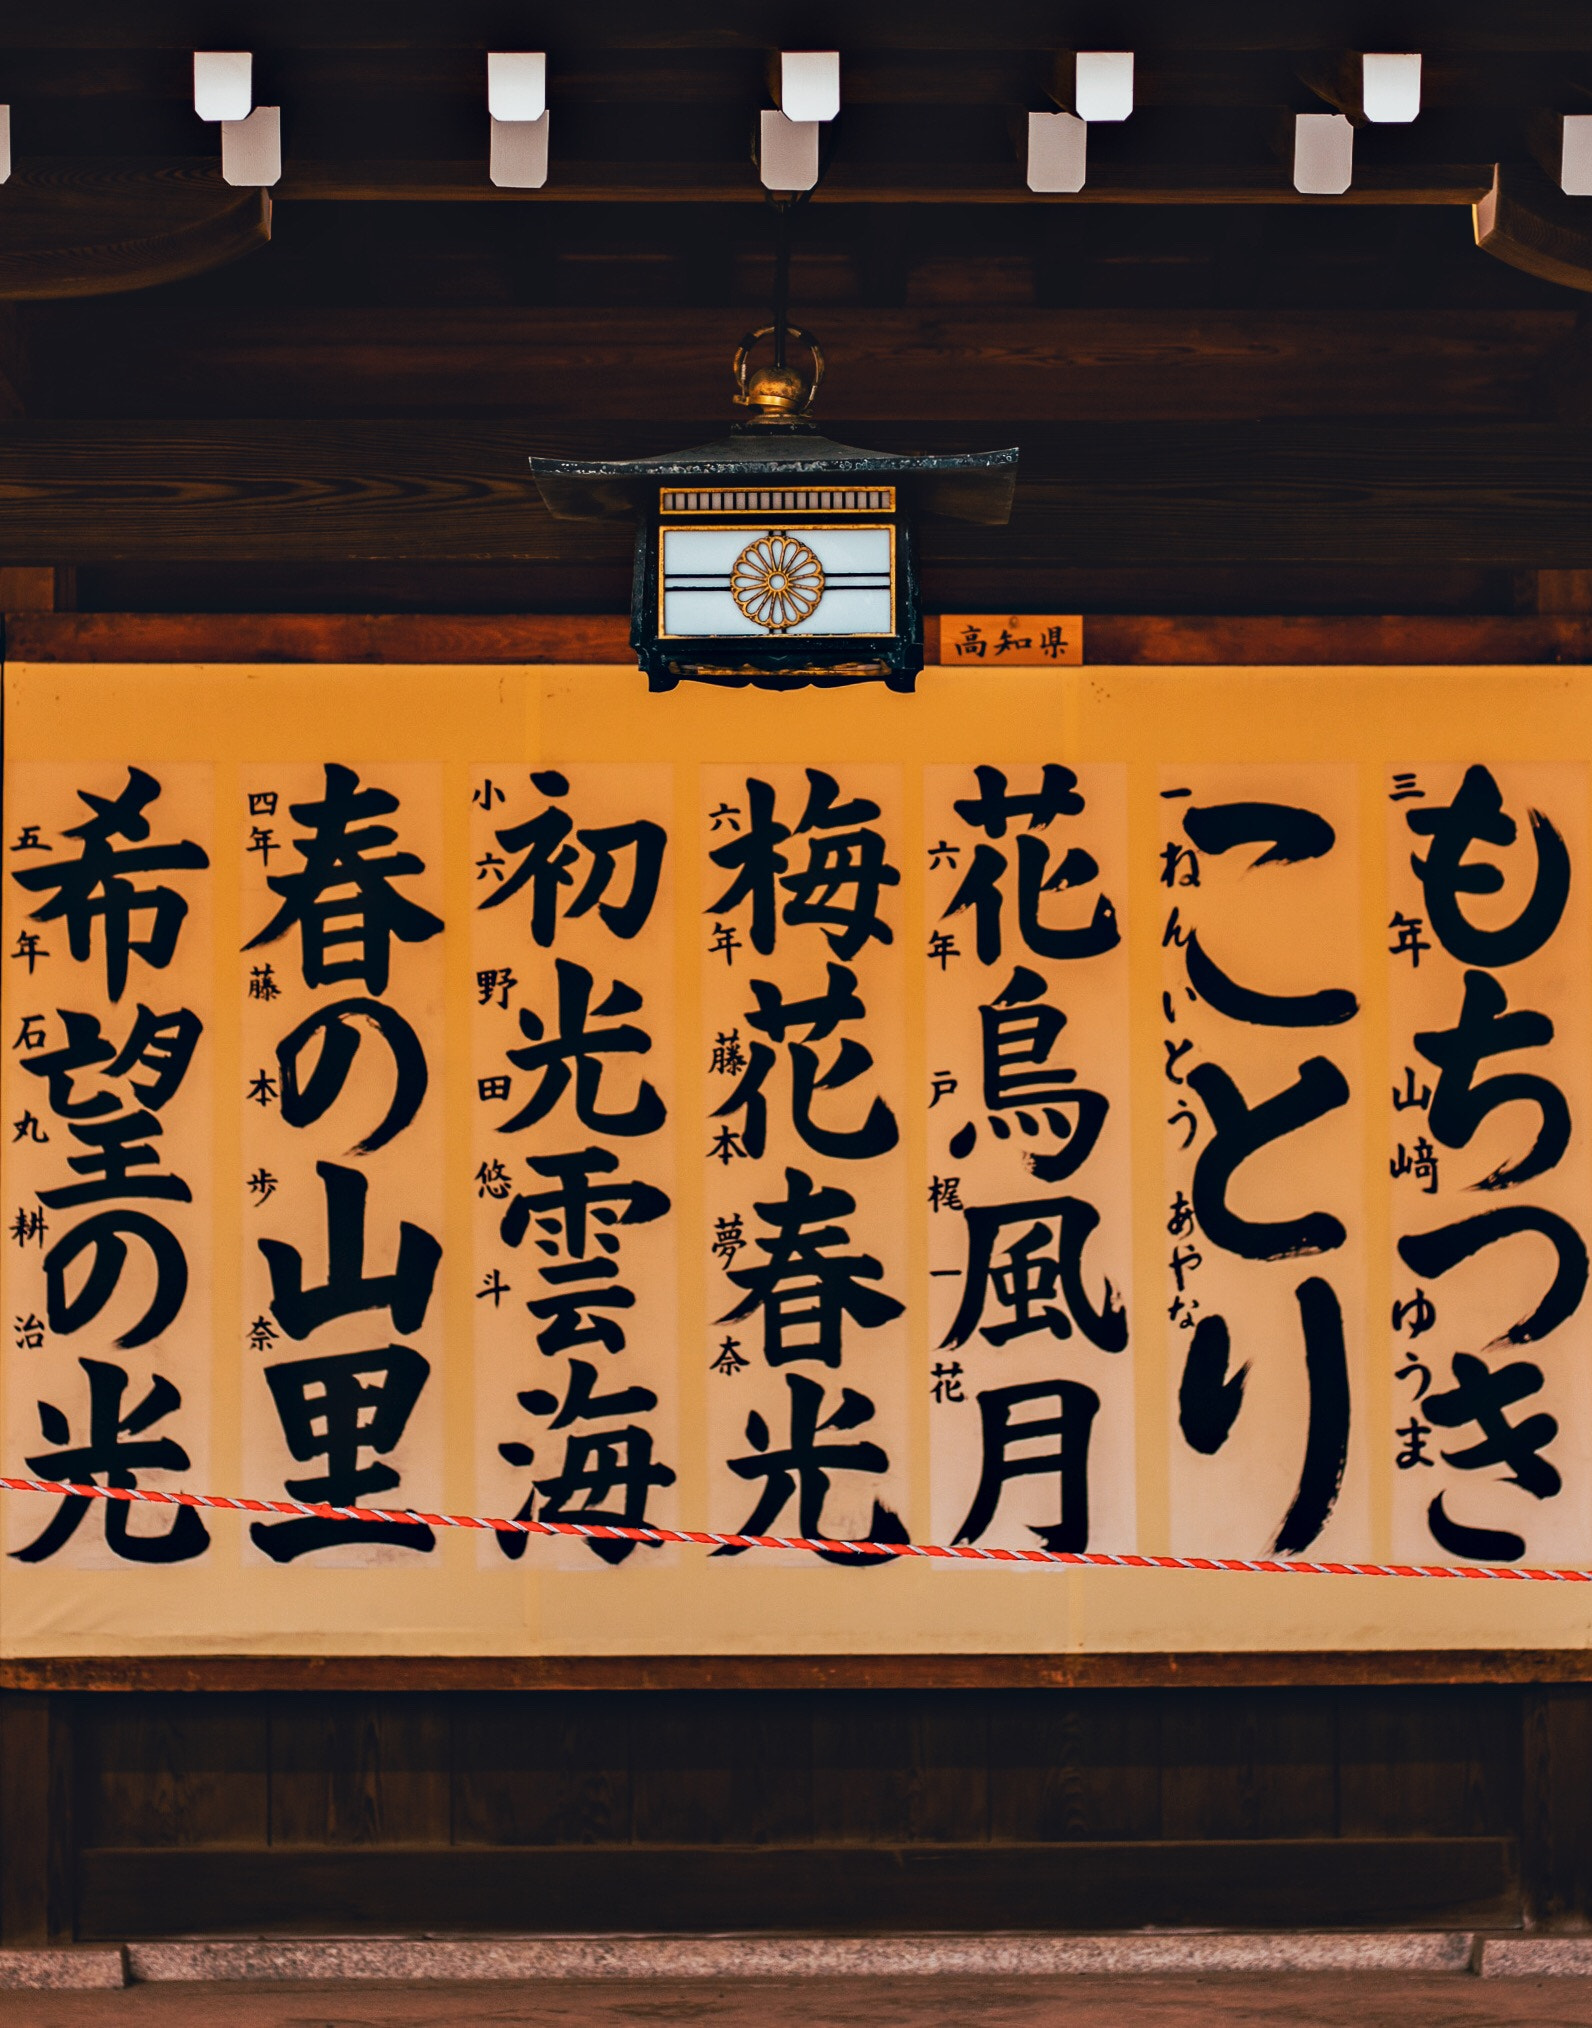 高知県
もちつき
三年 山﨑ゆうま
ことり
一ねん いとう あやな
花鳥風月
六年 戸梶一花
梅花春光
六年 藤本夢奈
初光雲海
小六 野田悠斗
春の山里
四年 藤本歩奈
希望の光
五年 石丸耕治